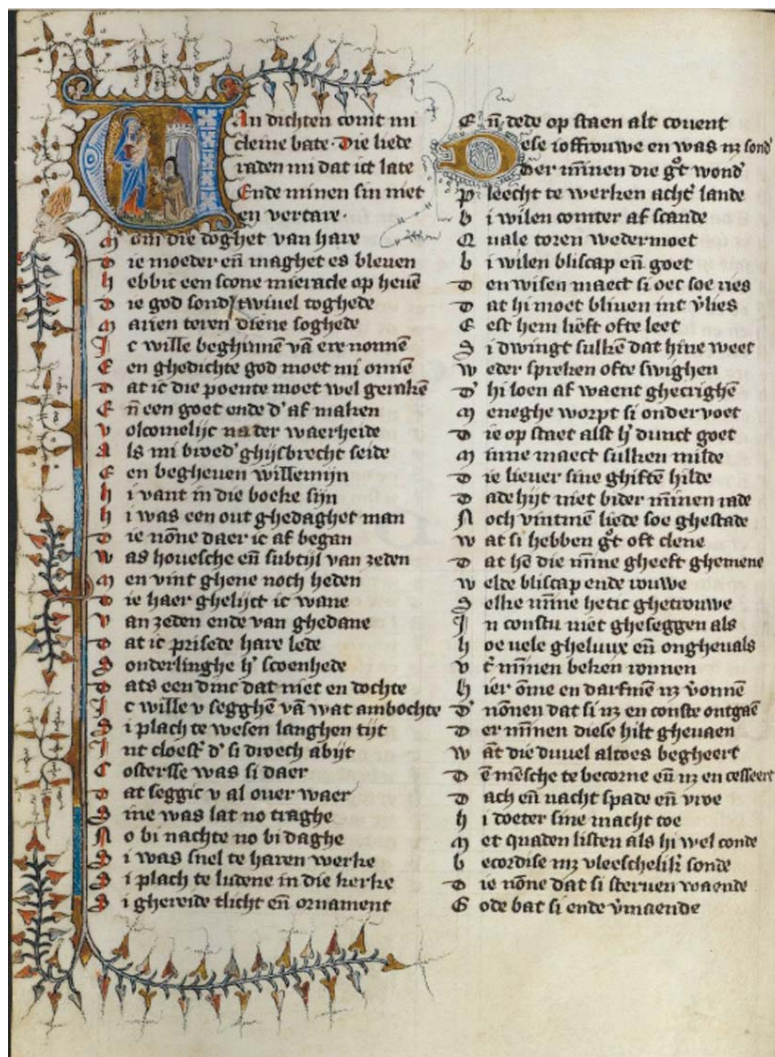 Van dichten comt mi
cleine bate. Die liede
raden mi dat ict late
Ende minen sin niet
en vertare.
Maer om die doghet van hare
Die moeder eñ maghet es bleuen
hebbic een scone mieracle op heuē
Die god sond' twiuel toghede
Marien teren diene soghede
Ic wille beghinnē vā ere nonnē
Een ghedichte god moet mi onnē
Dat ic die poente moet wel gerakē
Eñ een goet ende d' af maken
volcomelijc na der waerheide
Als mi broed' ghijsbrecht seide
Een begheuen willemijn
hi vant in die boeke sijn
hi was een out ghedaghet man
Die nōne daer ic af began
was houesche eñ subtijl van zeden
Men vint ghene noch heden
Die haer ghelijct ic wane
van zeden ende van ghedane
Dat ic prisede hare lede
Sonderlinghe h' scoenhede
Dats een dinc dat niet en dochte
Ic wille v segghē vā wat ambochte
Si plach te wesen langhen tijt
Int cloest' d' si droech abijt
Costersse was si daer
Dat seggic v al ouer waer
Sine was lat no traghe
No bi nachte no bi daghe
Si was snel te haren werke
Si plach te ludene in die kerke
Si ghereide tlicht eñ ornament
Eñ dede op staen alt couent
Dese ioffrouwe en was nz sond'
Der minnen die g°t wond'
Pleecht te werken acht' lande
bi wilen comter af scande
Quale toren wedermoet
bi wilen bliscap eñ goet
Den wisen maect si oec soe ries
Dat hi moet bliuen int v'lies
Eest hem lieft ofte leet
Si dwingt sulkē dat hine weet
weder spreken ofte swighen
D' hi loen af waent ghecrighē
Meneghe worpt si onder voet
Die op staet alst h' dunct goet
Minne maect sulken milde
Die lieuer sine ghiftē hilde
Dade hijt niet bider minnen rade
Noch vintmē liede soe ghestade
wat si hebben g°t oft clene
Dat hē die minne gheeft ghemene
welde bliscap ende rouwe
Selke minne hetic ghetrouwe
In constu niet gheseggen als
hoe vele gheluux eñ ongheuals
vt' minnen beken ronnen
hier ōme en darfmē nz v'onnē
D' nōnen dat si nz en conste ontgaē
Der minnen diese hilt gheuaen
want die duuel altoes begheert
Dē mēsche te becorne eñ nz en cesseert
Dach eñ nacht spade eñ vroe
hi doeter sine macht toe
Met quaden listen als hi wel conde
becordise mz vleeschelik' sonde
Die nōne dat si steruen waende
Gode bat si ende v'maende